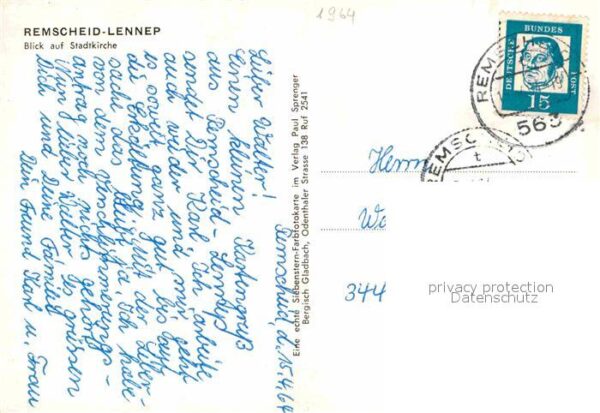 REMSCHEID-LENNEP
Blick auf Stadtkirche
1964
Remscheid, d. 15.4.64
Lieber Walter!
Einen kleinen Kartengruß
aus Remscheid-Lennep
sendet Dir Karl. Ich arbeite
auch wieder und mir geht
es soweit ganz gut bis auf
die
sache das Ich habe
von dem
antrag noch nichts gehört.
Nun lieber Walter es grüssen
Dich und Deine Familie
Dein Freund Karl u. Frau
Eine echte Siebenstern-Farbfotokarte im Verlag Paul Sprenger
Bergisch Gladbach, Odenthaler Strasse 138 Ruf 2541
DEUTSCHE
BUNDES
POST
15
REMSCH
563
REMSC
Herrn
344
privacy protection
Datenschutz